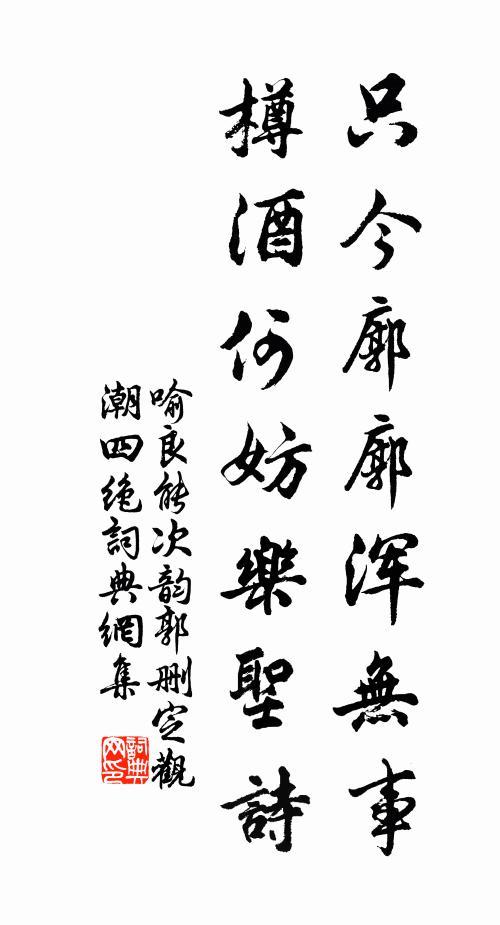 只今廓廓渾無事
樽酒何妨樂聖詩
喻良能次韵郭删定觀
潮四绝詞典網集
詞典
网印